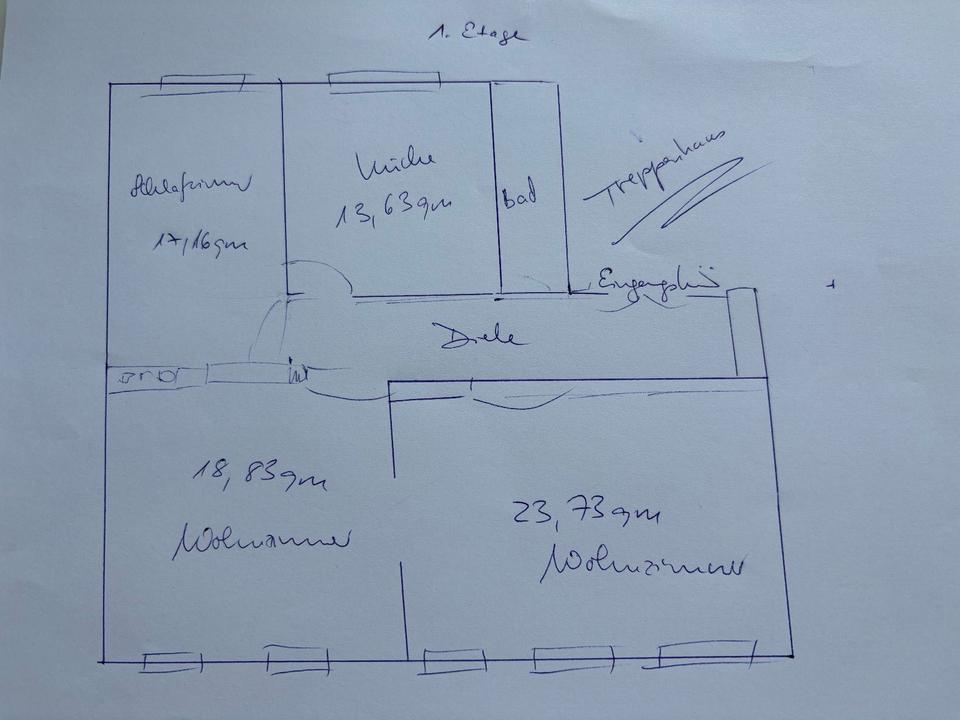 1. Etage
Schlafzimmer
17,16qm
Küche
13,63qm
Bad
Treppenhaus
Eingangstür
Diele
18,83qm
Wohnzimmer
23,73qm
Wohnzimmer